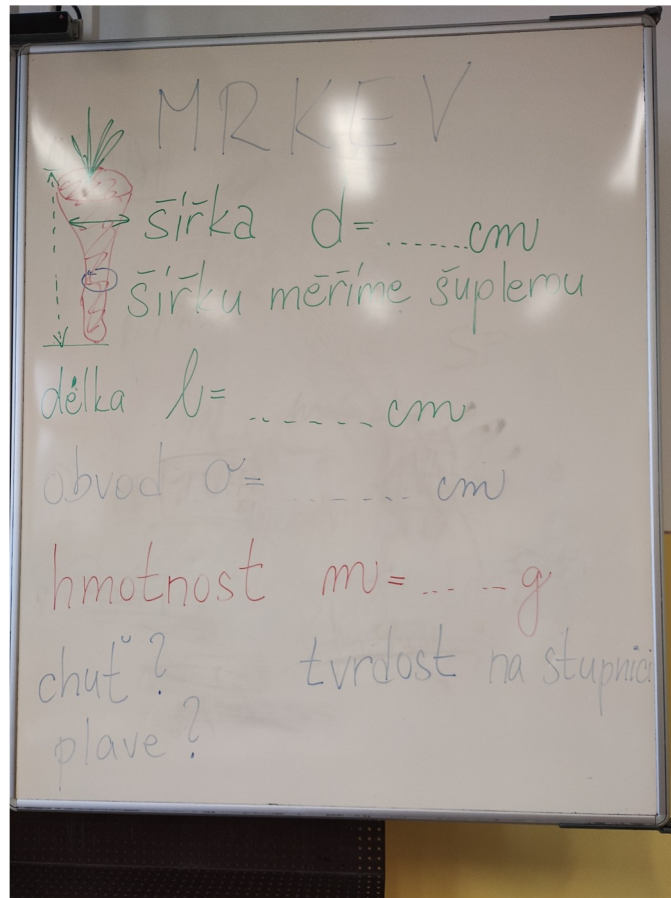 MRKEV
šířka d=......cm
šířku měříme šuplerou
délka l= ...... cm
obvod o= ...... cm
hmotnost m=... ..g
chuť? tvrdost na stupnici
plave?